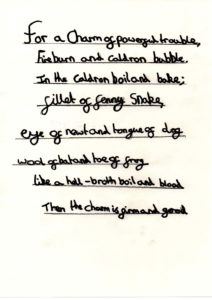 For a Charm of powerful trouble,
Fire burn and caldron bubble.
In the caldron boil and bake;
fillet of fenny Snake,
eye of newt and tongue of dog
wool of bat and toe of frog
like a hell-broth boil and blood
Then the charm is firm and good